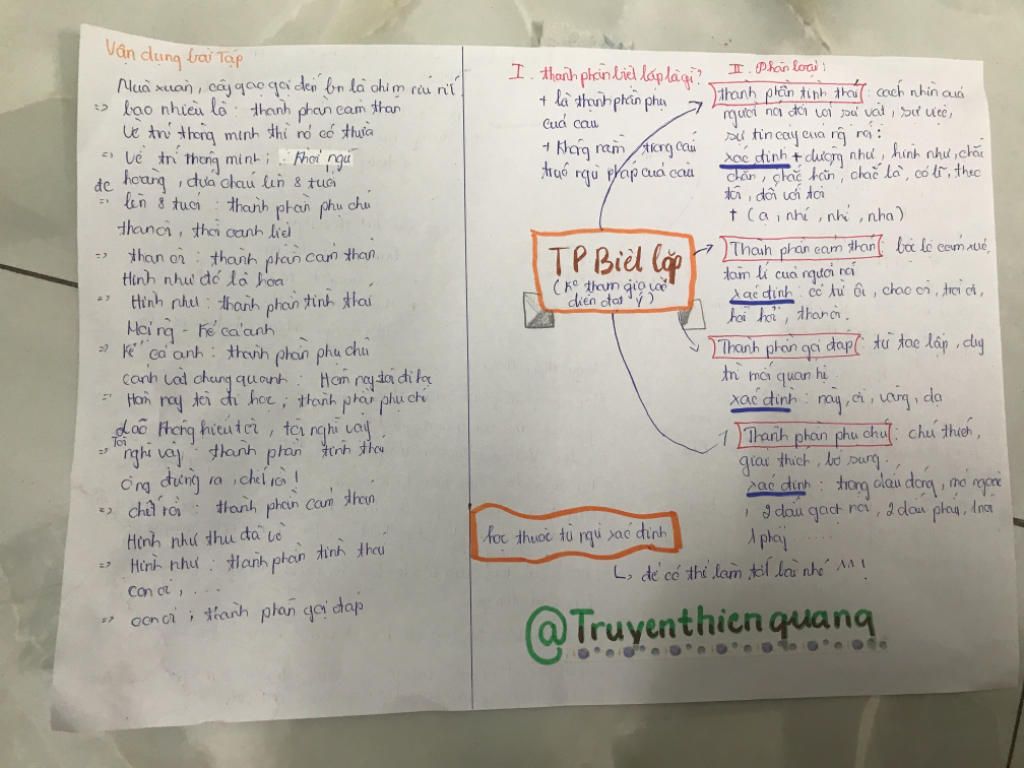 Vận dụng bài Tập
Mùa xuân, cây gạo gọi đến bn là chim ríu rít
=> bao nhiêu là : thành phần cảm thán
Về trí thông minh thì nó có thừa
=> Về trí thông minh ; Khởi ngữ
hoàng, đứa cháu lên 8 tuổi
=> lên 8 tuổi : thành phần phụ chú
than ôi, thời oanh liệt
=> than ôi : thành phần cảm thán
Hình như đó là hoa
=> Hình như : thành phần tình thái
Mọi ng - Kể cả anh
=> Kể cả anh : thành phần phụ chú
cảnh vật chung quanh : Hôm nay tôi đi học
=> Hôm nay tôi đi học ; thành phần phụ chú
Lão không hiểu tôi, tôi nghĩ vậy
=> Tôi nghĩ vậy : thành phần tình thái
ông đứng ra, chết rồi !
=> chết rồi : thành phần cảm thán
Hình như thu đã về
=> Hình như : thành phần tình thái
con ơi, ....
=> con ơi ; thành phần gọi đáp
I. thành phần biệt lập là gì?
+ là thành phần phụ
của câu
+ không nằm trong cấu
trúc ngữ pháp của câu
TP Biệt lập
(Ko tham gia vào
diễn đạt ý)
II. Phân loại :
thành phần tình thái : cách nhìn của
người nói đối với sự vật, sự việc,
sự tin cậy của ng nói :
xác định + dường như, hình như, chắc
chắn, chắc hẳn, chắc là, có lẽ, theo
tôi, đối với tôi
+ (ạ, nhé, nhỉ, nha)
Thành phần cảm thán : bộc lộ cảm xúc,
tâm lí của người nói
xác định : có từ ôi, chao ôi, trời ơi,
hỡi hỡi, than ôi.
Thành phần gọi đáp : từ tạo lập, duy
trì mối quan hệ
xác định : này, ơi, vâng, dạ
Thành phần phụ chú : chú thích,
giải thích, bổ sung.
xác định : trong dấu đóng, mở ngoặc
, 2 dấu gạch nối, 2 dấu phẩy,
1 phẩy ....
học thuộc từ ngữ xác định
để có thể làm tốt bài nhé ^^!
@Truyenthienquang